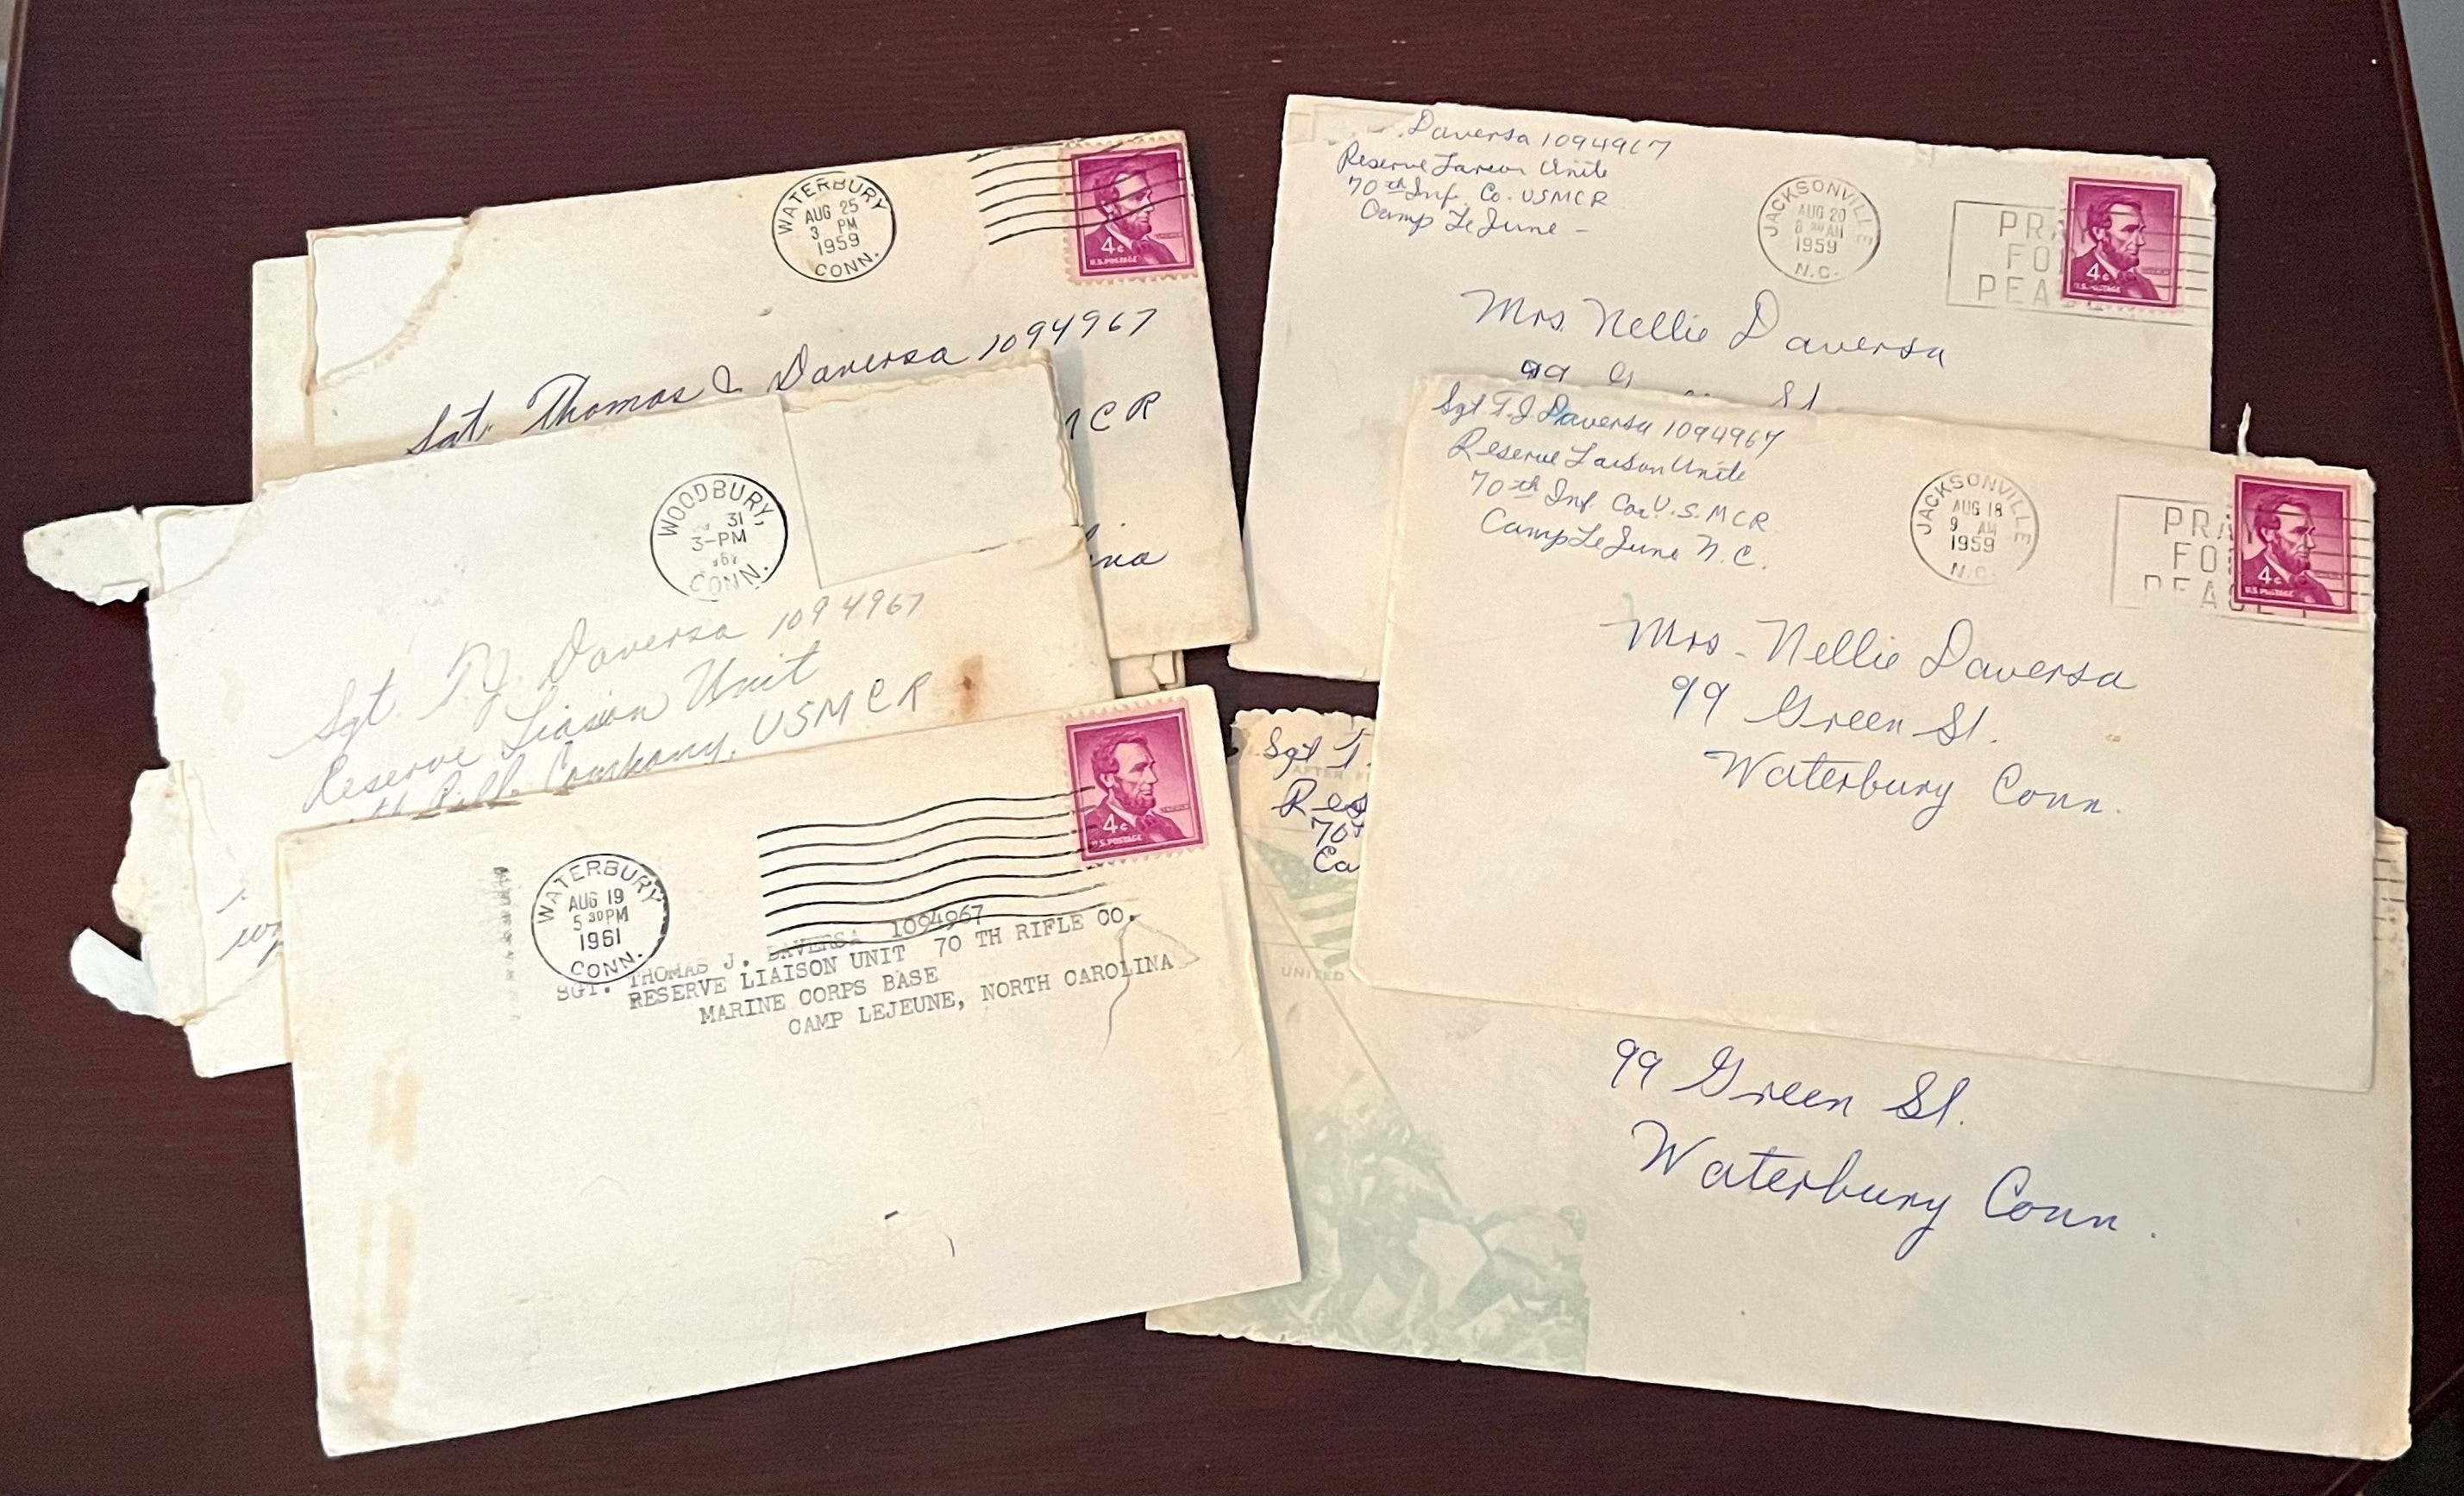 WATERBURY
AUG 25
3 PM
1959
CONN.
4c
U.S. POSTAGE
Sgt. Thomas J. Daversa 1094967
MCR
ina
WOODBURY,
31
3-PM
CONN.
Sgt. T.J. Daversa 1094967
Reserve Liasion Unit
Company, USMCR
WATERBURY
AUG 19
5 30 PM
1961
CONN.
4c
U.S. POSTAGE
SGT. THOMAS J. DAVERSA 1094967
RESERVE LIAISON UNIT 70 TH RIFLE CO.
MARINE CORPS BASE
CAMP LEJEUNE, NORTH CAROLINA
Daversa 1094967
Reserve Liason Unite
70th Inf. Co. USMCR
Camp Le June -
JACKSONVILLE
AUG 20
8 30 AM
1959
N.C.
PRA
FO
PEA
4c
U.S. POSTAGE
Mrs. Nellie Daversa
99 St
Sgt T.J. Daversa 1094967
Reserve Laison Unite
70th Inf Co. U.S.MCR
Camp Le June N.C.
JACKSONVILLE
AUG 18
9 AM
1959
N.C.
PRA
FO
PEACE
4c
U.S. POSTAGE
Mrs - Nellie Daversa
99 Green St.
Waterbury Conn.
Sgt T.
Res
70t
Ca
UNITED
99 Green St.
Waterbury Conn.